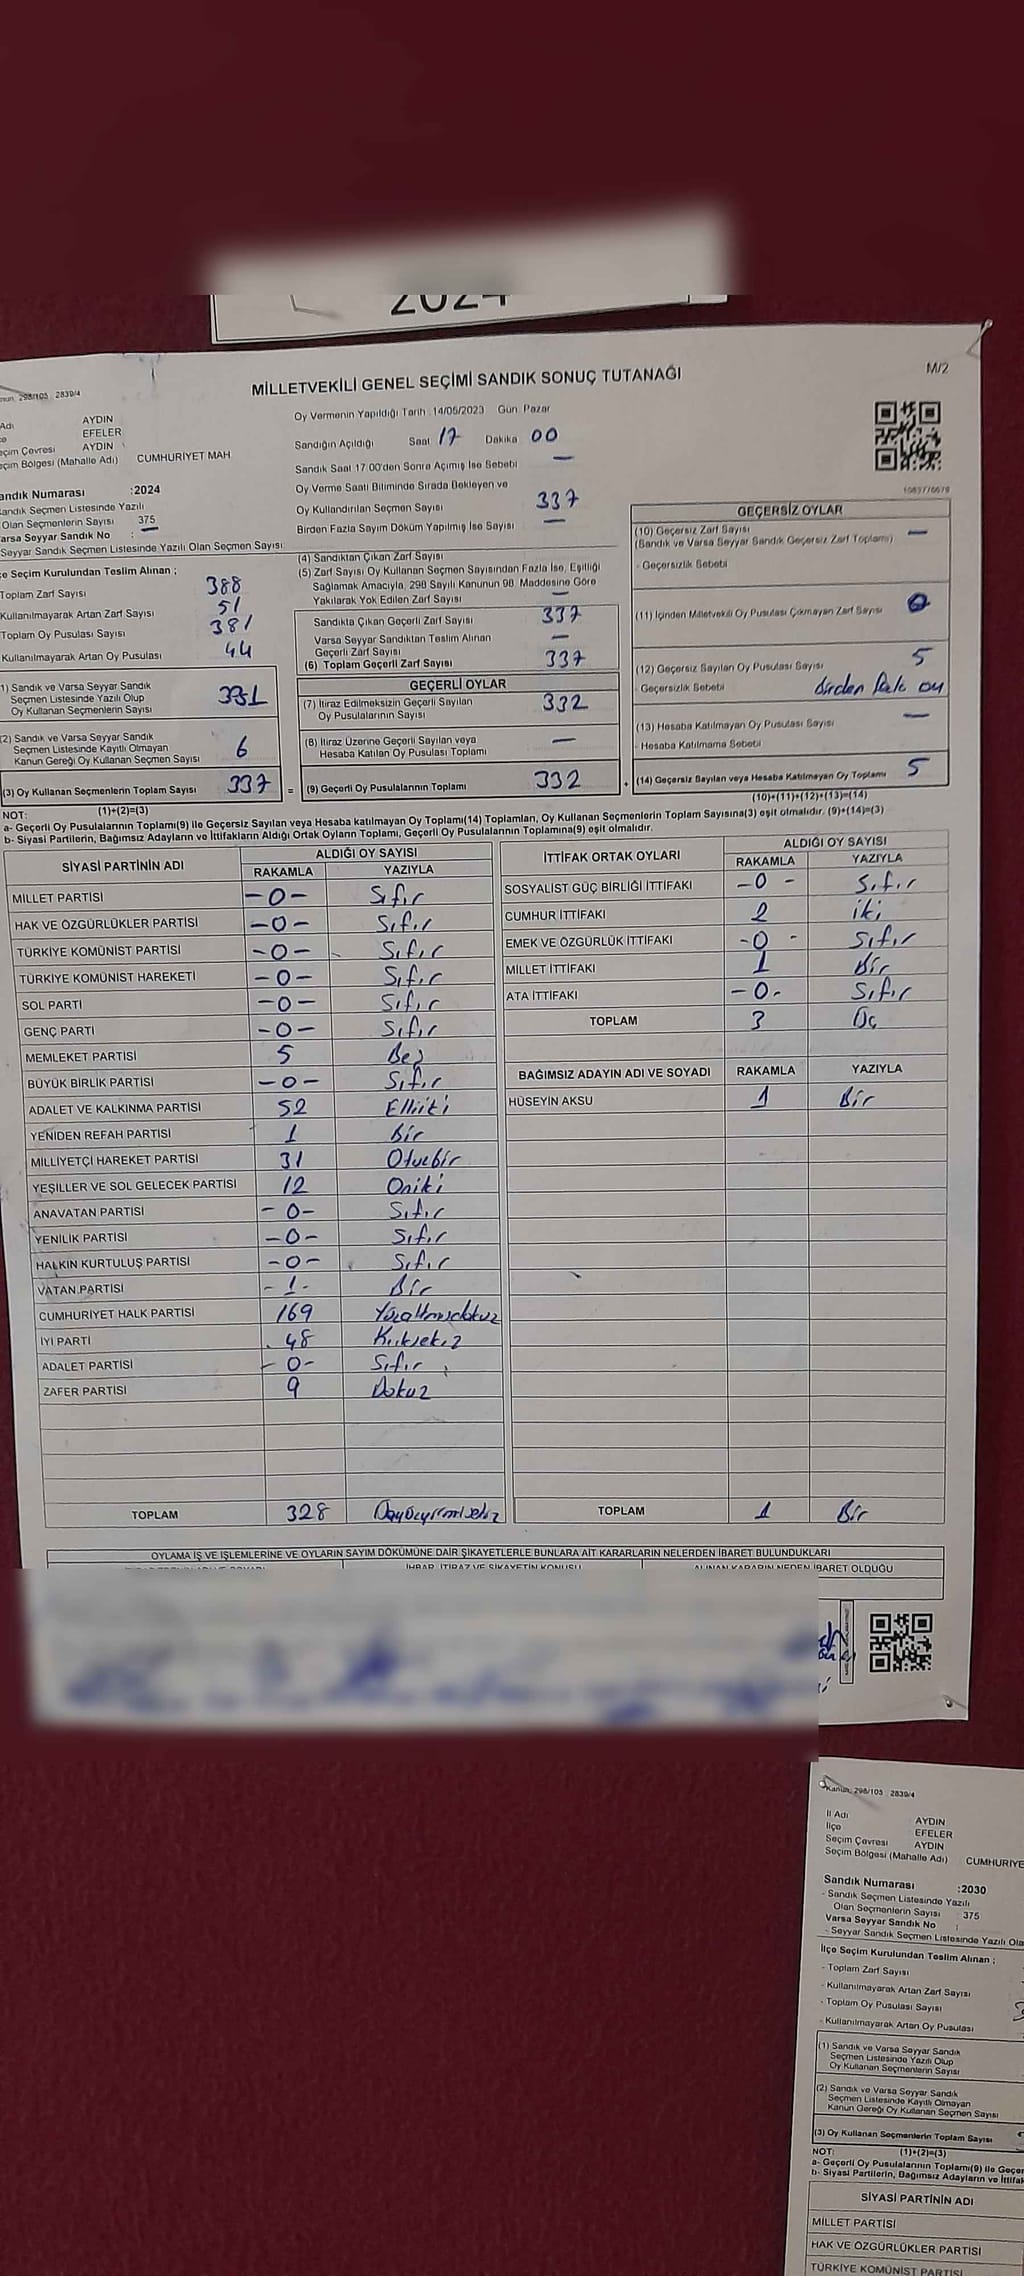 2024
MİLLETVEKİLİ GENEL SEÇİMİ SANDIK SONUÇ TUTANAĞI
M/2
298/105 2839/4
Adı AYDIN
EFELER
eçim Çevresi AYDIN
eçim Bölgesi (Mahalle Adı) CUMHURİYET MAH.
andık Numarası :2024
andık Seçmen Listesinde Yazılı
Olan Seçmenlerin Sayısı 375
arsa Seyyar Sandık No : —
Seyyar Sandık Seçmen Listesinde Yazılı Olan Seçmen Sayısı:
Oy Vermenin Yapıldığı Tarih 14/05/2023 Gün Pazar
Sandığın Açıldığı Saat 17 Dakika 00
Sandık Saat 17:00'den Sonra Açımış İse Sebebi —
Oy Verme Saati Bitiminde Sırada Bekleyen ve
Oy Kullandırılan Seçmen Sayısı 337
Birden Fazla Sayım Döküm Yapılmış İse Sayısı —
1083776679
e Seçim Kurulundan Teslim Alınan ;
Toplam Zarf Sayısı 388
Kullanılmayarak Artan Zarf Sayısı 51
Toplam Oy Pusulası Sayısı 381
Kullanılmayarak Artan Oy Pusulası 44
1) Sandık ve Varsa Seyyar Sandık
Seçmen Listesinde Yazılı Olup
Oy Kullanan Seçmenlerin Sayısı 331
(2) Sandık ve Varsa Seyyar Sandık
Seçmen Listesinde Kayıtlı Olmayan
Kanun Gereği Oy Kullanan Seçmen Sayısı 6
(3) Oy Kullanan Seçmenlerin Toplam Sayısı 337
(4) Sandıktan Çıkan Zarf Sayısı
(5) Zarf Sayısı Oy Kullanan Seçmen Sayısından Fazla İse, Eşitliği
Sağlamak Amacıyla, 298 Sayılı Kanunun 98. Maddesine Göre
Yakılarak Yok Edilen Zarf Sayısı —
Sandıkta Çıkan Geçerli Zarf Sayısı 337
Varsa Seyyar Sandıktan Teslim Alınan
Geçerli Zarf Sayısı —
(6) Toplam Geçerli Zarf Sayısı 337
GEÇERLİ OYLAR
(7) İtiraz Edilmeksizin Geçerli Sayılan
Oy Pusulalarının Sayısı 332
(8) İtiraz Üzerine Geçerli Sayılan veya
Hesaba Katılan Oy Pusulası Toplamı —
= (9) Geçerli Oy Pusulalarının Toplamı 332
GEÇERSİZ OYLAR
(10) Geçersiz Zarf Sayısı —
(Sandık ve Varsa Seyyar Sandık Geçersiz Zarf Toplamı)
- Geçersizlik Sebebi
(11) İçinden Milletvekili Oy Pusulası Çıkmayan Zarf Sayısı 0
(12) Geçersiz Sayılan Oy Pusulası Sayısı 5
- Geçersizlik Sebebi birden fazla oy
(13) Hesaba Katılmayan Oy Pusulası Sayısı —
- Hesaba Katılmama Sebebi
+ (14) Geçersiz Sayılan veya Hesaba Katılmayan Oy Toplamı 5
NOT: (1)+(2)=(3)
(10)+(11)+(12)+(13)=(14)
a- Geçerli Oy Pusulalarının Toplamı(9) ile Geçersiz Sayılan veya Hesaba katılmayan Oy Toplamı(14) Toplamları, Oy Kullanan Seçmenlerin Toplam Sayısına(3) eşit olmalıdır. (9)+(14)=(3)
b- Siyasi Partilerin, Bağımsız Adayların ve İttifakların Aldığı Ortak Oyların Toplamı, Geçerli Oy Pusulalarının Toplamına(9) eşit olmalıdır.
SİYASİ PARTİNİN ADI ALDIĞI OY SAYISI
RAKAMLA YAZIYLA
MİLLET PARTİSİ -0- Sıfır
HAK VE ÖZGÜRLÜKLER PARTİSİ -0- Sıfır
TÜRKİYE KOMÜNİST PARTİSİ -0- Sıfır
TÜRKİYE KOMÜNİST HAREKETİ -0- Sıfır
SOL PARTİ -0- Sıfır
GENÇ PARTİ -0- Sıfır
MEMLEKET PARTİSİ 5 Beş
BÜYÜK BİRLİK PARTİSİ -0- Sıfır
ADALET VE KALKINMA PARTİSİ 52 Elliiki
YENİDEN REFAH PARTİSİ 1 Bir
MİLLİYETÇİ HAREKET PARTİSİ 31 Otuzbir
YEŞİLLER VE SOL GELECEK PARTİSİ 12 Oniki
ANAVATAN PARTİSİ -0- Sıfır
YENİLİK PARTİSİ -0- Sıfır
HALKIN KURTULUŞ PARTİSİ -0- Sıfır
VATAN PARTİSİ -1- Bir
CUMHURİYET HALK PARTİSİ 169 Yüzaltmışdokuz
İYİ PARTİ 48 Kırksekiz
ADALET PARTİSİ -0- Sıfır
ZAFER PARTİSİ 9 Dokuz
TOPLAM 328 Üçyüzyirmisekiz
İTTİFAK ORTAK OYLARI ALDIĞI OY SAYISI
RAKAMLA YAZIYLA
SOSYALİST GÜÇ BİRLİĞİ İTTİFAKI -0- Sıfır
CUMHUR İTTİFAKI 2 iki
EMEK VE ÖZGÜRLÜK İTTİFAKI -0- Sıfır
MİLLET İTTİFAKI 1 Bir
ATA İTTİFAKI -0- Sıfır
TOPLAM 3 Üç
BAĞIMSIZ ADAYIN ADI VE SOYADI RAKAMLA YAZIYLA
HÜSEYİN AKSU 1 Bir
TOPLAM 1 Bir
OYLAMA İŞ VE İŞLEMLERİNE VE OYLARIN SAYIM DÖKÜMÜNE DAİR ŞİKAYETLERLE BUNLARA AİT KARARLARIN NELERDEN İBARET BULUNDUKLARI
İHBAR, İTİRAZ VE ŞİKAYETİN KONUSU ALINAN KARARIN NEDEN İBARET OLDUĞU
Kanun: 298/105 2839/4
İl Adı AYDIN
İlçe EFELER
Seçim Çevresi AYDIN
Seçim Bölgesi (Mahalle Adı) CUMHURİYE
Sandık Numarası :2030
- Sandık Seçmen Listesinde Yazılı
Olan Seçmenlerin Sayısı 375
Varsa Seyyar Sandık No :
- Seyyar Sandık Seçmen Listesinde Yazılı Ola
İlçe Seçim Kurulundan Teslim Alınan ;
- Toplam Zarf Sayısı
- Kullanılmayarak Artan Zarf Sayısı
- Toplam Oy Pusulası Sayısı
- Kullanılmayarak Artan Oy Pusulası
(1) Sandık ve Varsa Seyyar Sandık
Seçmen Listesinde Yazılı Olup
Oy Kullanan Seçmenlerin Sayısı
(2) Sandık ve Varsa Seyyar Sandık
Seçmen Listesinde Kayıtlı Olmayan
Kanun Gereği Oy Kullanan Seçmen Sayısı
(3) Oy Kullanan Seçmenlerin Toplam Sayısı
NOT: (1)+(2)=(3)
a- Geçerli Oy Pusulalarının Toplamı(9) ile Geçer
b- Siyasi Partilerin, Bağımsız Adayların ve İttifak
SİYASİ PARTİNİN ADI
MİLLET PARTİSİ
HAK VE ÖZGÜRLÜKLER PARTİSİ
TÜRKİYE KOMÜNİST PARTİSİ